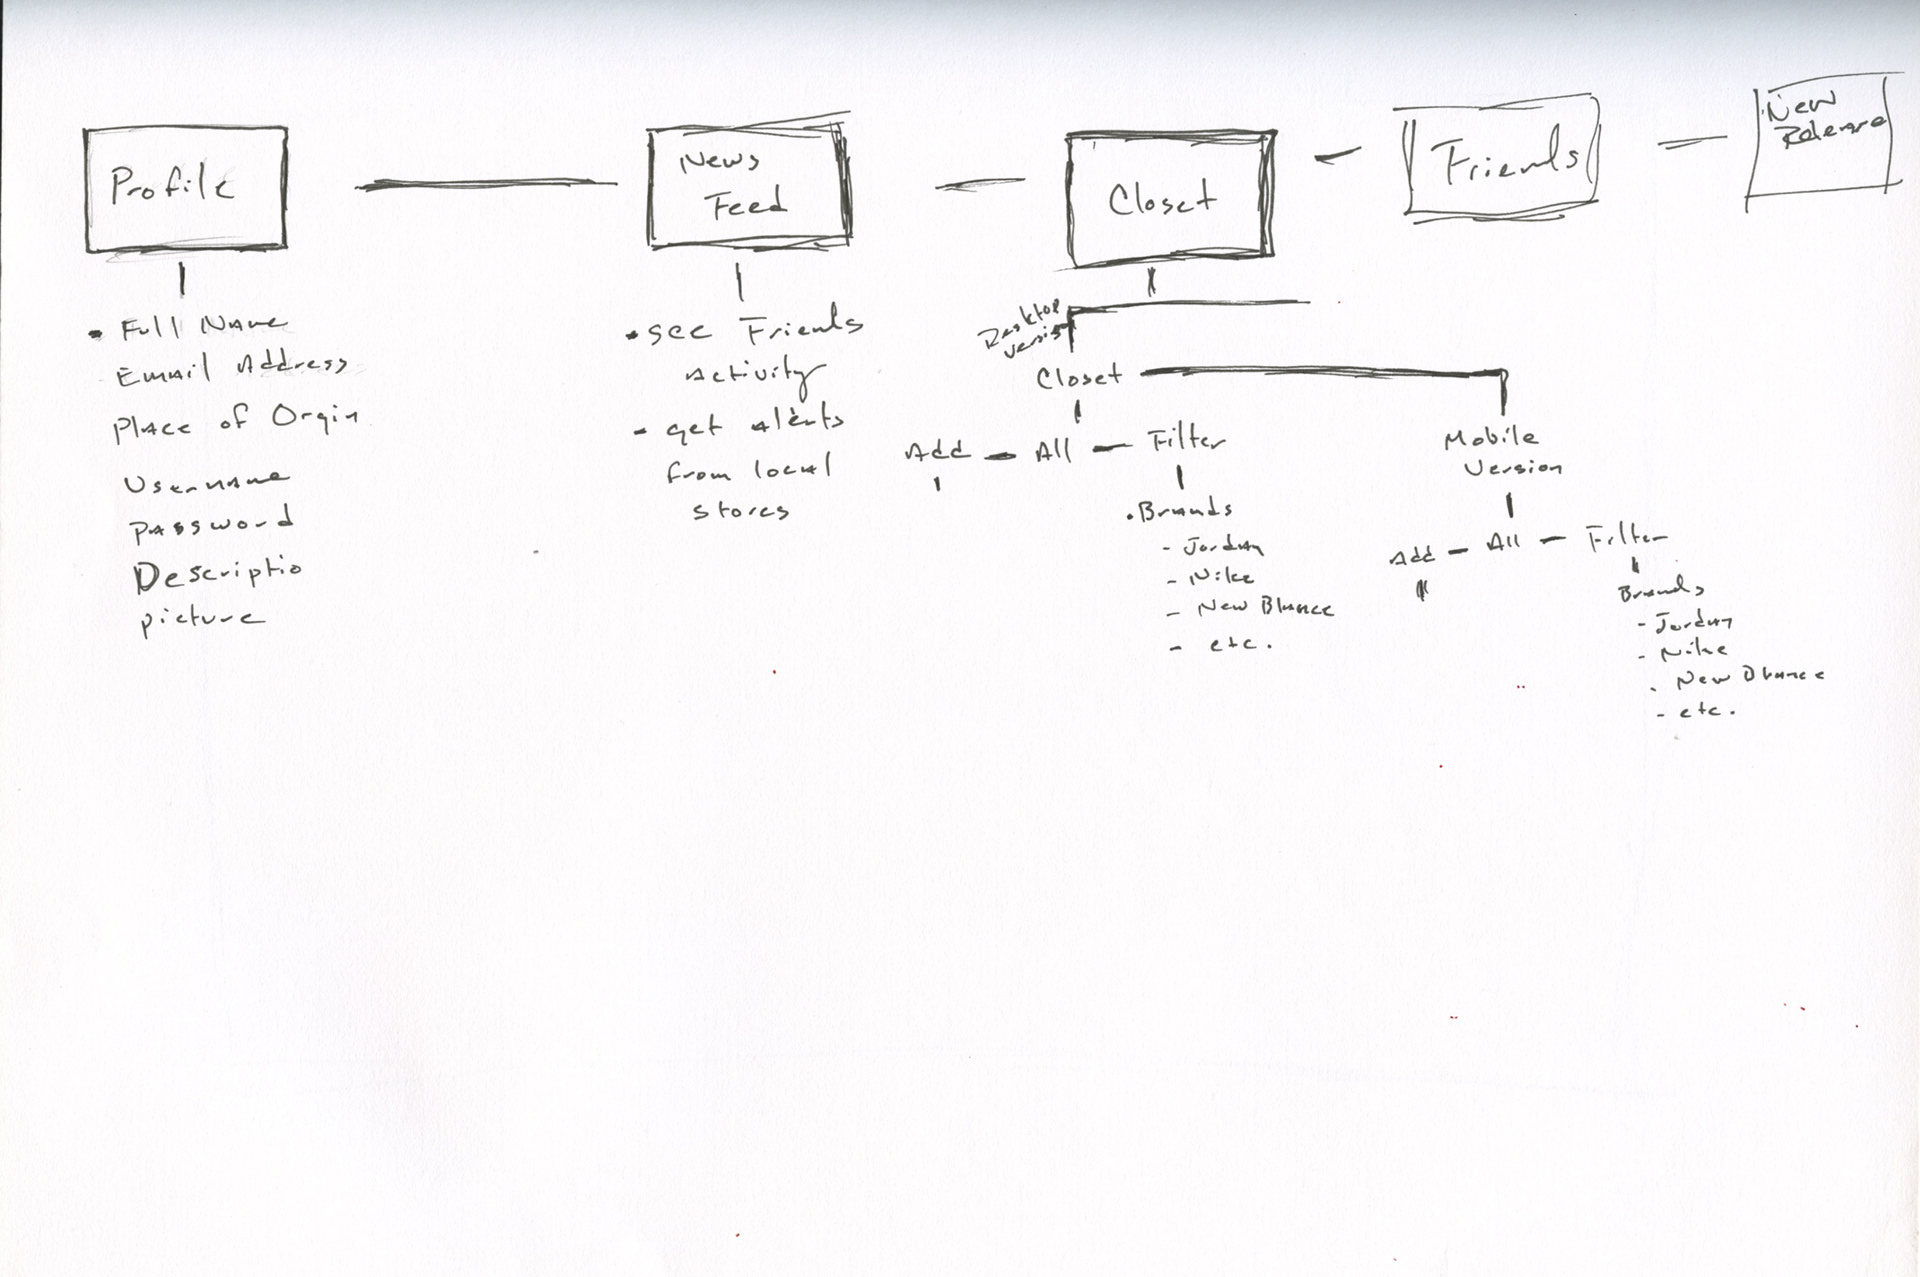 Profile
News
Feed
Closet
Friends
New
Release
• Full Name
Email Address
Place of Orgin
Username
Password
Descriptio
picture
• see Friends
Activity
- get alerts
from local
stores
Desktop
Version
Closet
Add - All - Filter
• Brands
- Jordan
- Nike
- New Blance
- etc.
Mobile
Version
Add - All - Filter
Brands
- Jordan
- Nike
- New Blance
- etc.